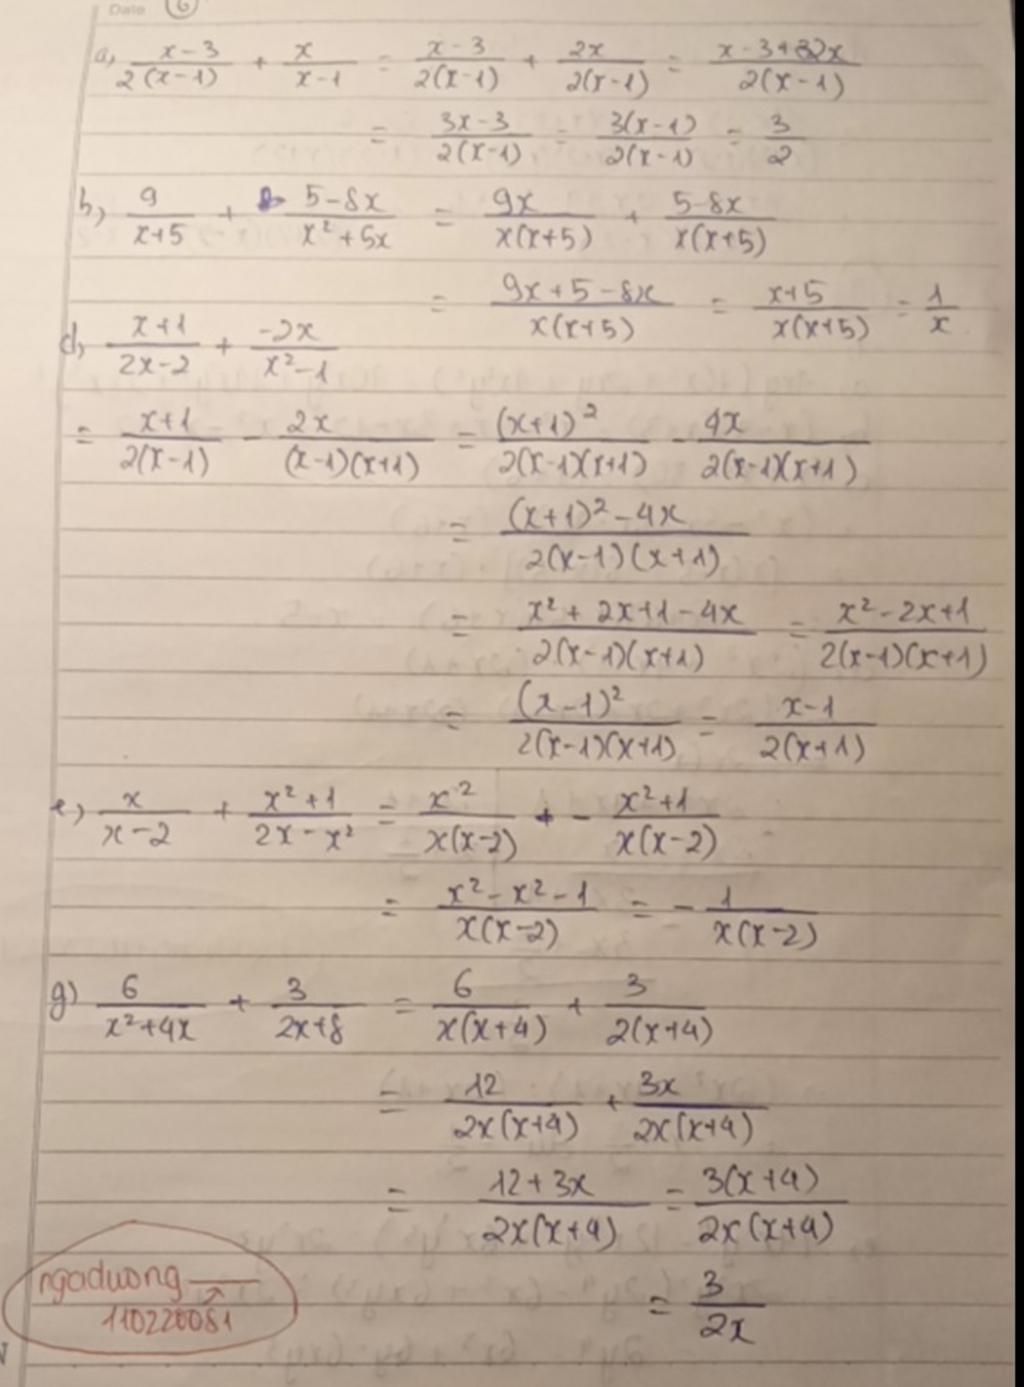 Date 6
a, \frac{x-3}{2(x-1)} + \frac{x}{x-1} = \frac{x-3}{2(x-1)} + \frac{2x}{2(x-1)} = \frac{x-3+2x}{2(x-1)}
= \frac{3x-3}{2(x-1)} = \frac{3(x-1)}{2(x-1)} = \frac{3}{2}
b, \frac{9}{x+5} + \frac{5-8x}{x^2+5x} = \frac{9x}{x(x+5)} + \frac{5-8x}{x(x+5)}
= \frac{9x+5-8x}{x(x+5)} = \frac{x+5}{x(x+5)} = \frac{1}{x}
d, \frac{x+1}{2x-2} + \frac{-2x}{x^2-1}
= \frac{x+1}{2(x-1)} - \frac{2x}{(x-1)(x+1)} = \frac{(x+1)^2}{2(x-1)(x+1)} - \frac{4x}{2(x-1)(x+1)}
= \frac{(x+1)^2-4x}{2(x-1)(x+1)}
= \frac{x^2+2x+1-4x}{2(x-1)(x+1)} = \frac{x^2-2x+1}{2(x-1)(x+1)}
= \frac{(x-1)^2}{2(x-1)(x+1)} = \frac{x-1}{2(x+1)}
e) \frac{x}{x-2} + \frac{x^2+1}{2x-x^2} = \frac{x^2}{x(x-2)} + - \frac{x^2+1}{x(x-2)}
= \frac{x^2-x^2-1}{x(x-2)} = - \frac{1}{x(x-2)}
g) \frac{6}{x^2+4x} + \frac{3}{2x+8} = \frac{6}{x(x+4)} + \frac{3}{2(x+4)}
= \frac{12}{2x(x+4)} + \frac{3x}{2x(x+4)}
= \frac{12+3x}{2x(x+4)} = \frac{3(x+4)}{2x(x+4)}
= \frac{3}{2x}
ngaduong
110220081